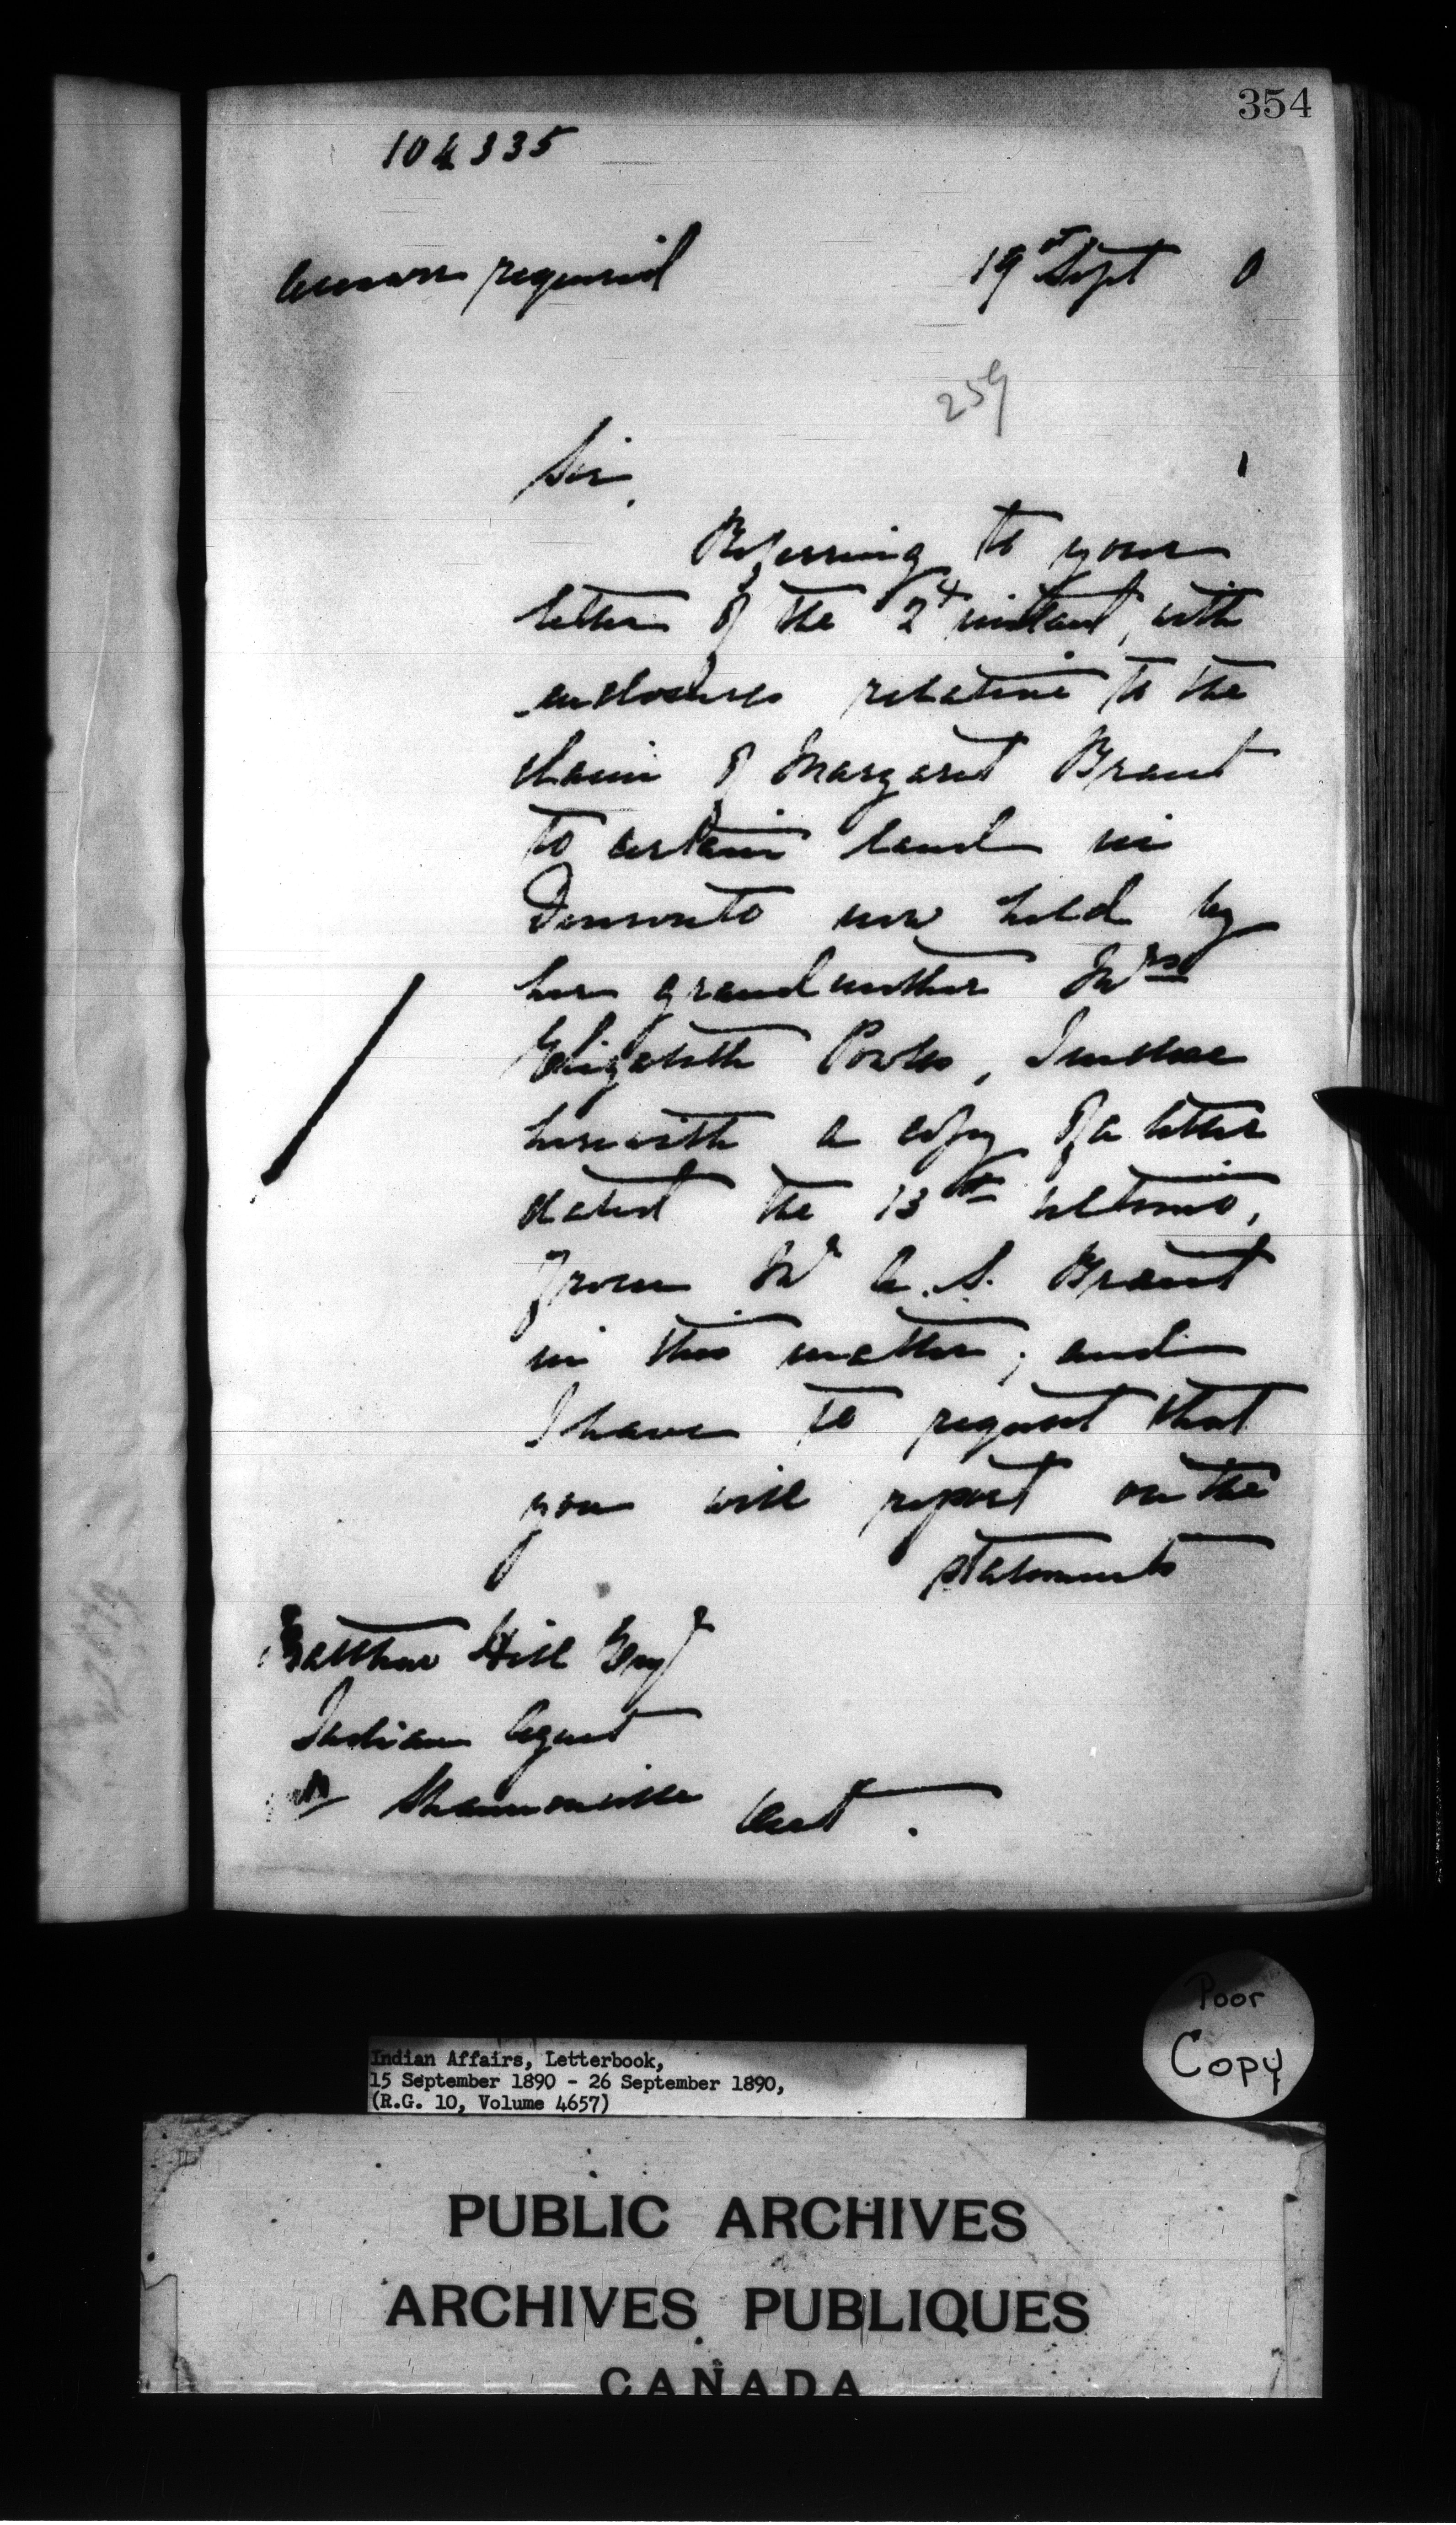 354
104335
Answer required 19th Sept 0
259
Sir,
Referring to your
letter of the 2d instant, with
enclosures relative to the
claim of Margaret Brant
to certain land in
Deseronto now held by
her grandmother Mrs
Elizabeth Powles, I enclose
herewith a copy of a letter
dated the 13th ultimo,
from Mr A. S. Brant
in this matter; and
I have to request that
you will report on the
statements
Matthew Hill Esqr
Indian Agent
Shannonville Ont.
Poor
Copy
Indian Affairs, Letterbook,
15 September 1890 - 26 September 1890,
(R.G. 10, Volume 4657)
PUBLIC ARCHIVES
ARCHIVES PUBLIQUES
CANADA